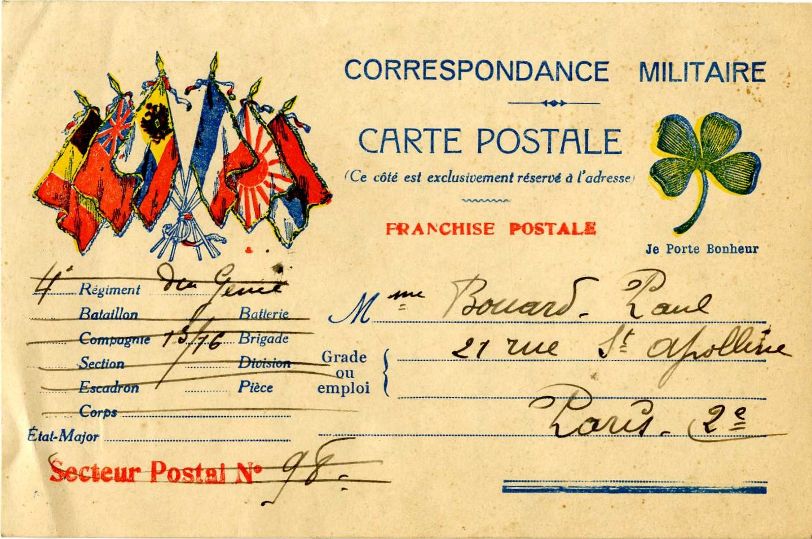 CORRESPONDANCE MILITAIRE
CARTE POSTALE
(Ce côté est exclusivement réservé à l'adresse)
FRANCHISE POSTALE
Je Porte Bonheur
4e Régiment du Génie
Bataillon Batterie
Compagnie 15/16 Brigade
Section Division
Escadron Pièce
Corps
État-Major
Secteur Postal No 98.
Mme Bouard. Paul
Grade ou emploi
21 rue St Apolline
Paris. 2e